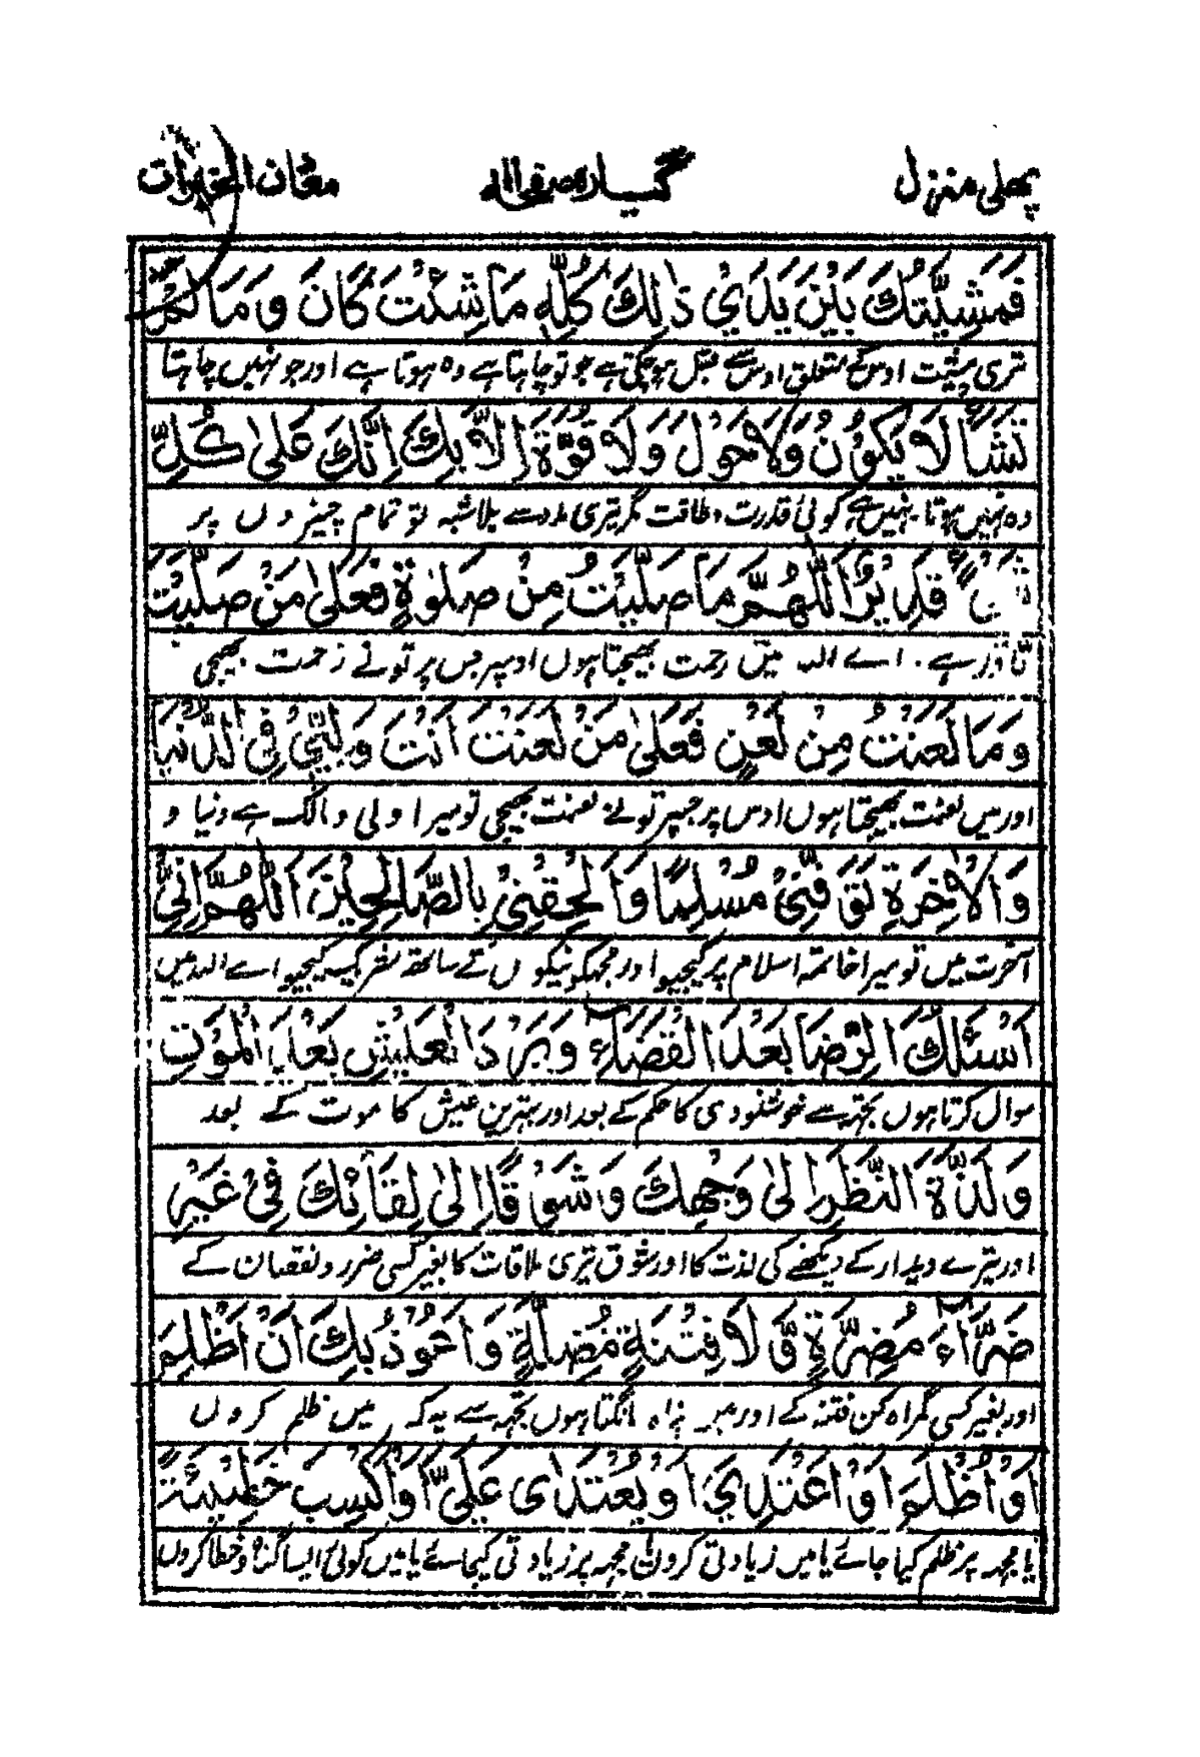 پہلی منزل گیارہ صفحہ معان الخیرات
فَمَشِيَّتُكَ بَيْنَ يَدَيْ ذٰلِكَ كُلِّهٖ مَا شِئْتَ كَانَ وَمَا لَمْ
تری مشیت اوس کے متعلق اوس سے قبل ہو چکی ہے جو تو چاہتا ہے وہ ہوتا ہے اور جو نہیں چاہتا
تَشَأْ لَا يَكُوْنُ وَلَا حَوْلَ وَلَا قُوَّةَ اِلَّا بِكَ اِنَّكَ عَلٰى كُلِّ
وہ نہیں ہوتا۔ نہیں ہے کوئی قدرت و طاقت مگر تیری مدد سے بلاشبہ تو تمام چیزوں پر
قَدِيْرٌ اَللّٰهُمَّ مَا صَلَّيْتُ مِنْ صَلٰوةٍ فَعَلٰى مَنْ صَلَّيْتَ
قادر ہے۔ اے اللہ میں رحمت بھیجتا ہوں اوسپر جس پر تونے رحمت بھیجی
وَمَا لَعَنْتُ مِنْ لَعْنٍ فَعَلٰى مَنْ لَعَنْتَ اَنْتَ وَلِيِّيْ فِي الدُّنْيَا
اور میں لعنت بھیجتا ہوں اوس پر جسپر تونے لعنت بھیجی تو میرا ولی و مالک ہے دنیا و
وَالْاٰخِرَةِ تَوَفَّنِيْ مُسْلِمًا وَاَلْحِقْنِيْ بِالصَّالِحِيْنَ اَللّٰهُمَّ اِنِّيْ
آخرت میں تو میرا خاتمہ اسلام پر کیجیو اور مجھکو نیکوں کے ساتھ شریک کیجیو اے اللہ میں
اَسْئَلُكَ الرِّضَا بَعْدَ الْقَضَاءِ وَبَرْدَ الْعَيْشِ بَعْدَ الْمَوْتِ
سوال کرتا ہوں تجھ سے خوشنودی کا حکم کے بعد اور بہترین عیش کا موت کے بعد
وَلَذَّةَ النَّظَرِ اِلٰى وَجْهِكَ وَشَوْقًا اِلٰى لِقَآئِكَ فِيْ غَيْرِ
اور تیرے دیدار کے دیکھنے کی لذت کا اور شوق تیری ملاقات کا بغیر کسی ضرر و نقصان کے
ضَرَّآءَ مُضِرَّةٍ وَّ لَا فِتْنَةٍ مُضِلَّةٍ وَاَعُوْذُ بِكَ اَنْ اَظْلِمَ
اور بغیر کسی گمراہ کن فتنہ کے اور میں پناہ مانگتا ہوں تجھ سے یہ کہ میں ظلم کروں
اَوْ اُظْلَمَ اَوْ اَعْتَدِيَ اَوْ يُعْتَدٰى عَلَيَّ اَوْ اَكْسِبَ خَطِيْئَةً
یا مجھ پر ظلم کیا جائے یا میں زیادتی کروں یا مجھ پر زیادتی کیجائے یا میں کوئی ایسا گناہ و خطا کروں